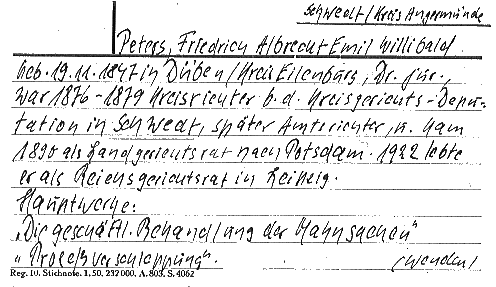 Schwedt/Kreis Angermünde
Peters, Friedrich Albrecht Emil Willibald
Geb. 19.11.1847 in Düben/Kreis Eilenburg, Dr. jur.,
war 1876-1879 Kreisrichter b. d. Kreisgerichts-Depu-
tation in Schwedt, später Amtsrichter, u. kam
1890 als Landgerichtsrat nach Potsdam. 1922 lebte
er als Reichsgerichtsrat in Leipzig.
Hauptwerke:
„Die geschäftl. Behandlung der Mahnsachen"
„Prozeßverschleppung".
(wenden!
Reg. 10. Stichnote. 1. 50. 232 000. A. 803. S. 4062